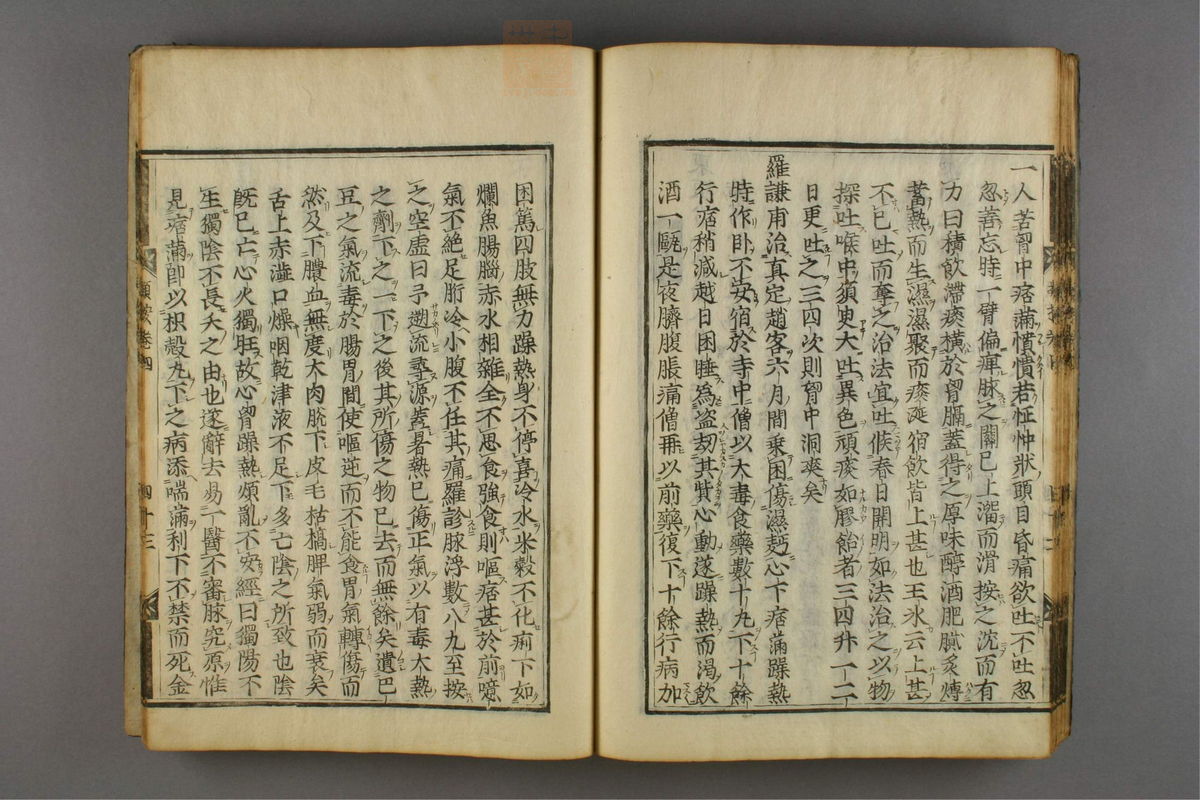 一人苦胷中痞滿憒憒若怔忡狀頭目昏痛欲吐不吐忽
忽善忘時一臂偏痺脉之關已上溜而滑按之沈而有
力曰積飲滯痰橫於胷膈蓋得之厚味醇酒肥膩炙煿
蓄熱而生濕濕聚而痰涎宿飲皆上甚也王冰云上甚
不已吐而奪之治法宜吐候春日開明如法治之以物
探吐喉中須臾大吐異色頑痰如膠飴者三四升一二
日更吐之三四次則胷中洞爽矣
羅謙甫治真定趙客六月間乘困傷濕麪心下痞滿躁熱
時作卧不安宿於寺中僧以大毒食藥數十丸下十餘
行痞稍減越日困睡為盜劫其貲心動遂躁熱而渴飲
酒一甌是夜臍腹脹痛僧再以前藥復下十餘行病加
困篤四肢無力躁熱身不停喜冷水米穀不化痢下如
爛魚腸腦赤水相雜全不思食強食則嘔痞甚於前噫
氣不絕足胻冷小腹不任其痛羅診脉浮數八九至按
之空虛曰予遡流尋源蓋暑熱已傷正氣以有毒大熱
之劑下之一下之後其所傷之物已去而無餘矣遺巴
豆之氣流毒於腸胃間使嘔逆而不能食胃氣轉傷而
然及下膿血無度大肉脫下皮毛枯槁脾氣弱而衰矣
舌上赤澁口燥咽乾津液不足下多亡陰之所致也陰
既已亡心火獨旺故心胷躁熱煩亂不安經曰獨陽不
生獨陰不長夭之由也遂辭去易一醫不審脉究原惟
見痞滿卽以枳殼丸下之病添喘滿利下不禁而死金
類按卷四
四十三